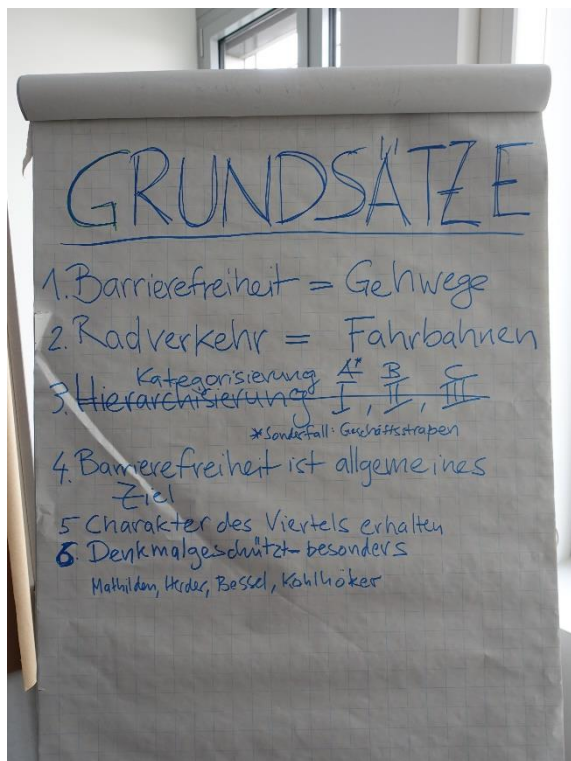 GRUNDSÄTZE
1. Barrierefreiheit = Gehwege
2. Radverkehr = Fahrbahnen
Kategorisierung A* B C
3. Hierarchisierung I, II, III
*Sonderfall: Geschäftsstraßen
4. Barrierefreiheit ist allgemeines
Ziel
5 Charakter des Viertels erhalten
6. Denkmalgeschützt - besonders
Mathilden, Herder, Bessel, Kohlhöker